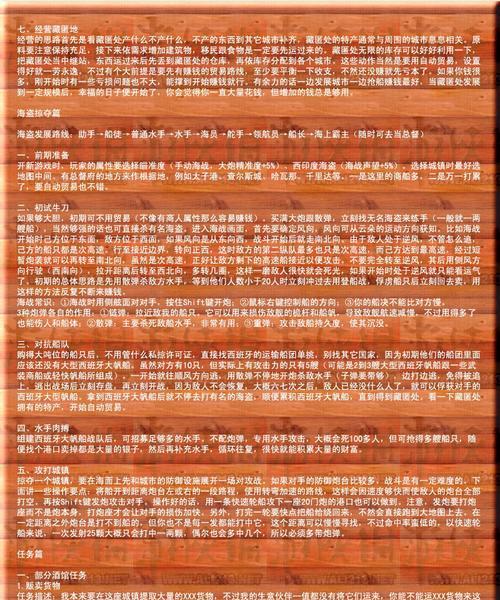 七、经营藏匿地
经营的思路首先是看藏匿处产什么不产什么，不产的东西到其它城市补齐，藏匿处的特产通常与周围的城市息息相关。原
料要注意保持充足，接下来依需求增加建筑物，移民跟食物是一定要先运过来的。藏匿处无限的库存可以好好利用一下，
把藏匿处当中继站，东西运过来后先丢到藏匿处的仓库，再依库存分配到各个城市，这些动作当然是要用自动贸易，设置
得好就一劳永逸，不过有个大前提是要先有赚钱的贸易路线，至少要平衡一下收支，不然还没赚就先亏本了。如果你钱很
多，刚开始时有一些亏损问题也不大，能撑到开始赚钱就行，有余力的话一边发展城市一边抢船赚钱最好，当藏匿处发展
到一定规模后，幸福的日子便开始了，你会觉得你一直大量花钱，但增加的钱总是够用。
海盗掠夺篇
海盗发展路线：助手→船徒→普通水手→水手→海员→舵手→领航员→船长→海上霸主（随时可去当总督）
一、前期准备
开新游戏时，玩家的属性要选择瞄准度（手动海战，大炮精准度+5%）、西印度海盗（海战声望+5%），选择城镇时最好选
地图中间，有总督府的地方来作根据地，例如太子港、查尔斯城、哈瓦那、千里达等。一是这里的商船多，二是万一打累
了，要自动贸易也不错。
二、初试牛刀
如果够大胆，初期可不用贸易（不像有商人属性那么容易赚钱），买满大炮跟散弹，立刻找无名海盗来练手（一般就一两
艘船），当然够强的话也可直接杀有名海盗，进入海战画面，首先要确定风向，风向可从云朵的运动方向获知，比如海战
开始时己方位于东面，敌方位于西面，如果风向是从东向西，战斗开后就走南北向，由于敌人处于逆风，不管怎么追，
己方的船只都是次高速，行至接近边界，转向正西，这时敌方的第二纵队最多也只是次高速，而己方达到最高速，经过短
暂绕袭就可以再转至南北向，虽然是次高速，正好让敌方剩下的高速船接近以便攻击，不要完全转至逆风，其后用侧风方
向行驶（西南向），拉开距离后转至西北向，多转几圈，这样一磨敌人很快就会死光，如果开始时处于逆风就只能看运气
了。初期的总体思路是先用散弹杀敌方水手，等到他们人数小于20人时立刻冲过去用登船战，俘虏船只后立刻回去卖，用
这样的方法反复不断来赚钱。
海战常识：①海战时用侧舷面对对手，按住Shift键开炮；②鼠标右键控制船的方向；③你的船决不能比对方慢。
3种炮弹各自的作用：①链弹：拉近敌我的船只，它可以用来损伤敌舰的桅杆和船帆，导致敌舰航速减慢，不过用得多了
也能伤人和船体；②散弹：主要杀死敌船水手，非常有用；③重弹：攻击敌船持久度，使其沉没。
三、对抗船队
购得大吨位的船只后，不用管什么私掠许可证，直接找西班牙的运输船团单挑，别找其它国家，因为初期他们的船团里面
应该还没有大型西班牙大帆船，虽然对方有10只，但实际上有攻击力的只有5艘（可能是2到3艘大型西班牙帆船跟一些武
装商船或轻快帆船所组成），一开始就往顺风方向逃，用散弹不停地开炮杀敌水手（子弹要带够），边打边逃，免得被追
上，逃出战场后立刻存盘，再立刻开战，因为敌人不会恢复，大概六七次之后，敌人已经没什么人了，就可以俘获对手的
西班牙大型帆船，拿到西班牙大帆船后就不停去打有名的海盗，顺便累积西班牙大帆船，直到得到藏匿处，看一下藏匿处
拥有的特产，开始自动贸易。
四、水手肉搏
组建西班牙大帆船战队后，可招募足够多的水手，不配炮弹，专用水手攻击，大概会死100多人，但可抢得多艘船只，随
便找个港口卖掉都是大量的银子，然后再补充水手，循环往复，很快就能积累大量的财富。
五、攻打城镇
掠夺一个城镇，要在海面上先和城市的防御设施展开一场对攻战。如果对手的防御炮台比较多，战斗是有一定难度的。下
面讲一些操作要点：将船开到距离炮台左或右的一段路程，使用转弯加速的路线，这样会因速度够快而使敌人的炮台全部
打空，再按Shift键发炮攻击对手，操作好的话，用一条快速轮船攻下一座20门炮的港口也可以做到。注意，发炮要打炮
座而不是炮本身，打炮座才会让对手的损伤加快。另外，打完一轮要快点把船给绕回来，不然会直接跑到大地图上去，在
一定距离之外炮台是打不到船的，但你也不是每一发都能打中它，这个距离可以慢慢寻找，不过命中率蛮低的，以快速轮
船来说，一次发射25颗大概只会打中一两颗，偶尔也会多中几个，所以必须多带炮弹。
任务篇
一、部分酒馆任务
1. 贩卖货物
任务描述：我本来要在这座城镇提取大量的XXX货物，不过我的生意伙伴一值都没有将它们运来，你能不能运XXX货物来这